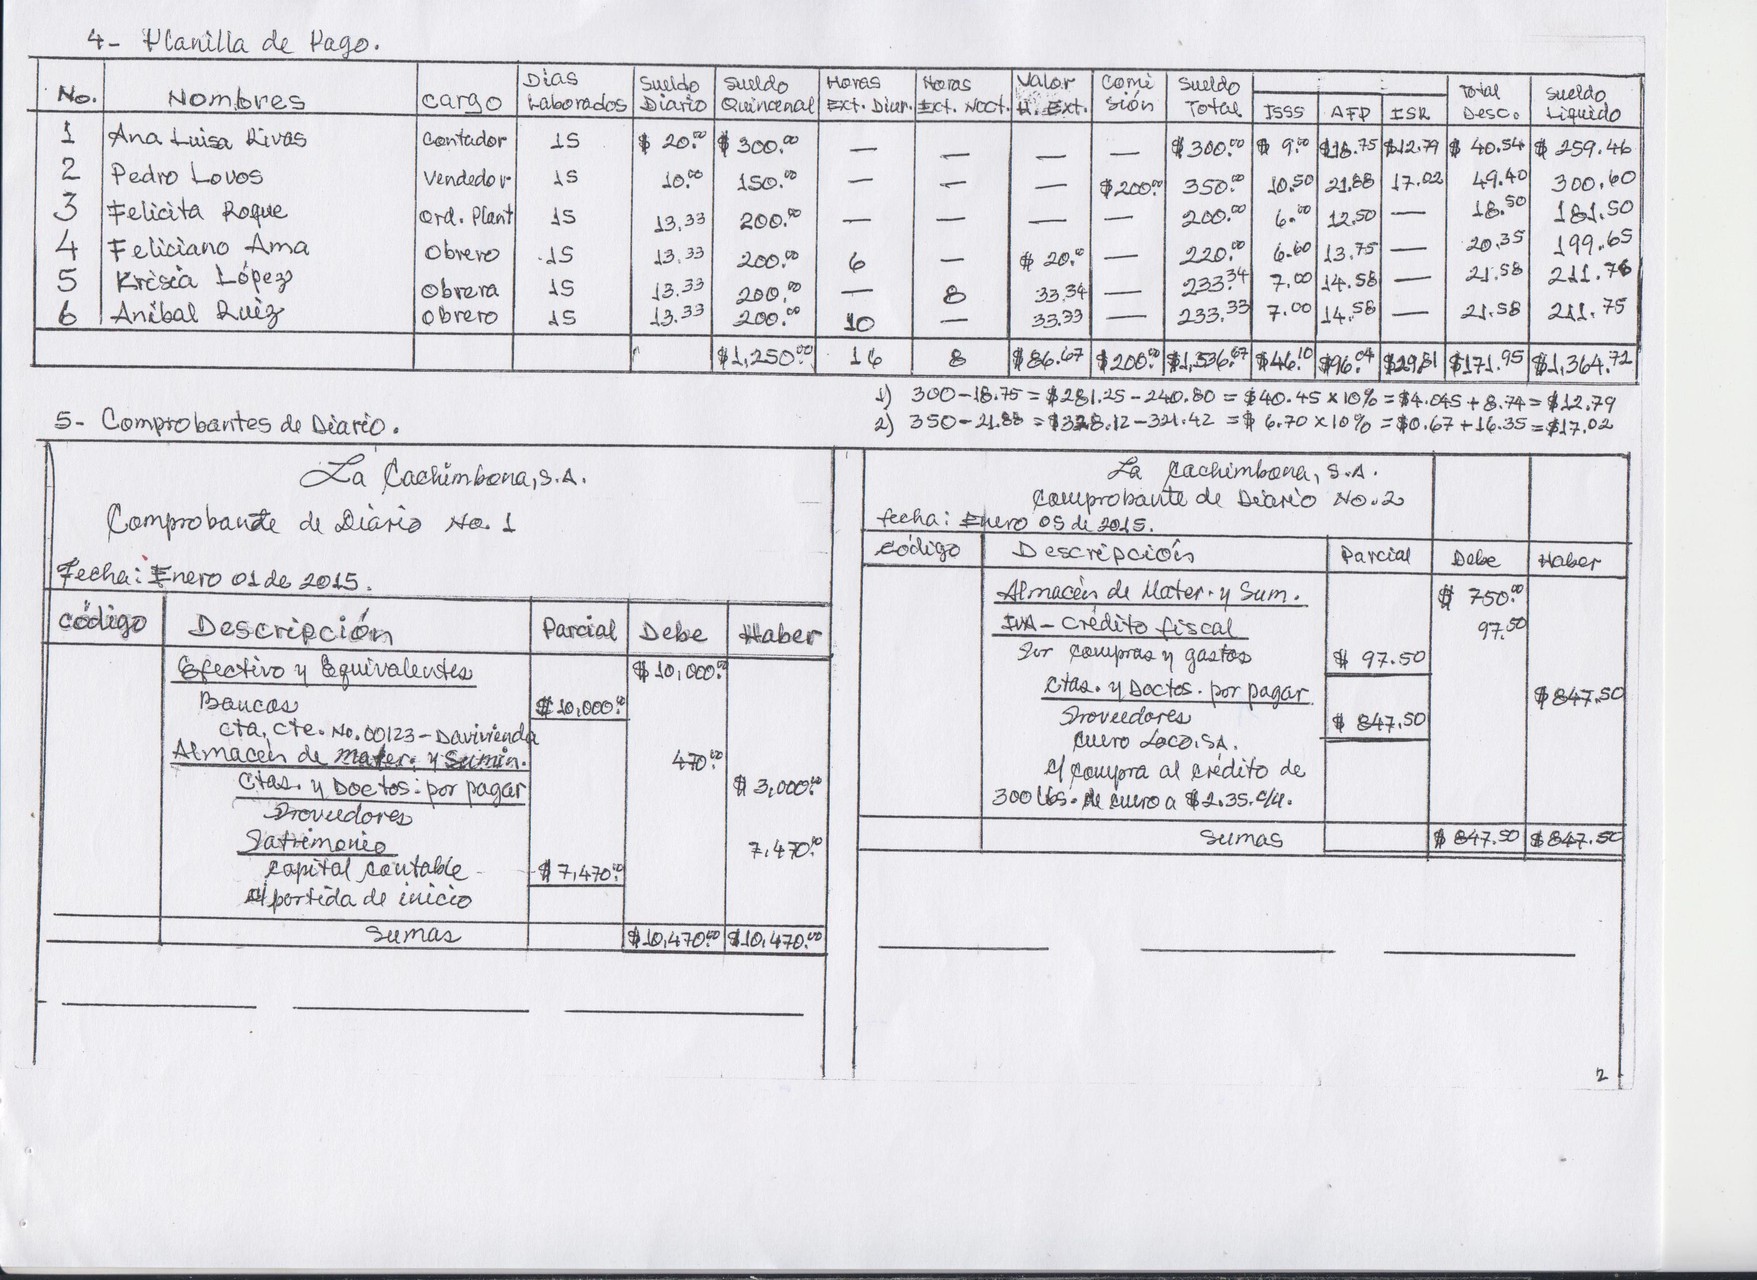 4- Planilla de Pago.
No. Nombres Cargo Días Laborados Sueldo Diario Sueldo Quincenal Horas Ext. Diur. Horas Ext. Noct. Valor H. Ext. Comisión Sueldo Total ISSS AFP ISR Total Desc. Sueldo Líquido
1 Ana Luisa Rivas Contador 15 $ 20.00 $ 300.00 — — — — $ 300.00 $ 9.00 $18.75 $12.79 $ 40.54 $ 259.46
2 Pedro Lovos Vendedor 15 10.00 150.00 — — — $ 200.00 350.00 10.50 21.88 17.02 49.40 300.60
3 Felicita Roque Ord. Plant 15 13.33 200.00 — — — — 200.00 6.00 12.50 — 18.50 181.50
4 Feliciano Ama Obrero 15 13.33 200.00 6 — $ 20.00 — 220.00 6.60 13.75 — 20.35 199.65
5 Krisia López Obrera 15 13.33 200.00 — 8 33.34 — 233.34 7.00 14.58 — 21.58 211.76
6 Anibal Ruiz Obrero 15 13.33 200.00 10 — 33.33 — 233.33 7.00 14.58 — 21.58 211.75
$1,250.00 16 8 $86.67 $200.00 $1,536.67 $46.10 $96.04 $29.81 $171.95 $1,364.72
1) 300-18.75 = $281.25-240.80 = $40.45 x 10% = $4.045 + 8.74 = $12.79
2) 350-21.88 = $328.12-321.42 = $ 6.70 x 10% = $0.67 + 16.35 = $17.02
5- Comprobantes de Diario.
La Cachimbona, S.A.
Comprobante de Diario No. 1
Fecha: Enero 01 de 2015.
Código Descripción Parcial Debe Haber
Efectivo y Equivalentes $ 10,000.00
Bancos $ 10,000.00
Cta. Cte. No. 00123 - Davivienda
Almacén de Mater. y Sumin. 470.00
Ctas. y Doctos. por pagar $ 3,000.00
Proveedores
Patrimonio 7,470.00
Capital contable $ 7,470.00
C/ partida de inicio
Sumas $10,470.00 $10,470.00
La Cachimbona, S.A.
Comprobante de Diario No. 2
fecha: Enero 05 de 2015.
Código Descripción Parcial Debe Haber
Almacén de Mater. y Sum. $ 750.00
IVA - Crédito fiscal 97.50
Por compras y gastos $ 97.50
Ctas. y Doctos. por pagar $ 847.50
Proveedores $ 847.50
Cuero Loco, SA.
C/ Compra al crédito de
300 lbs. de cuero a $ 2.35. c/u.
Sumas $ 847.50 $ 847.50
2